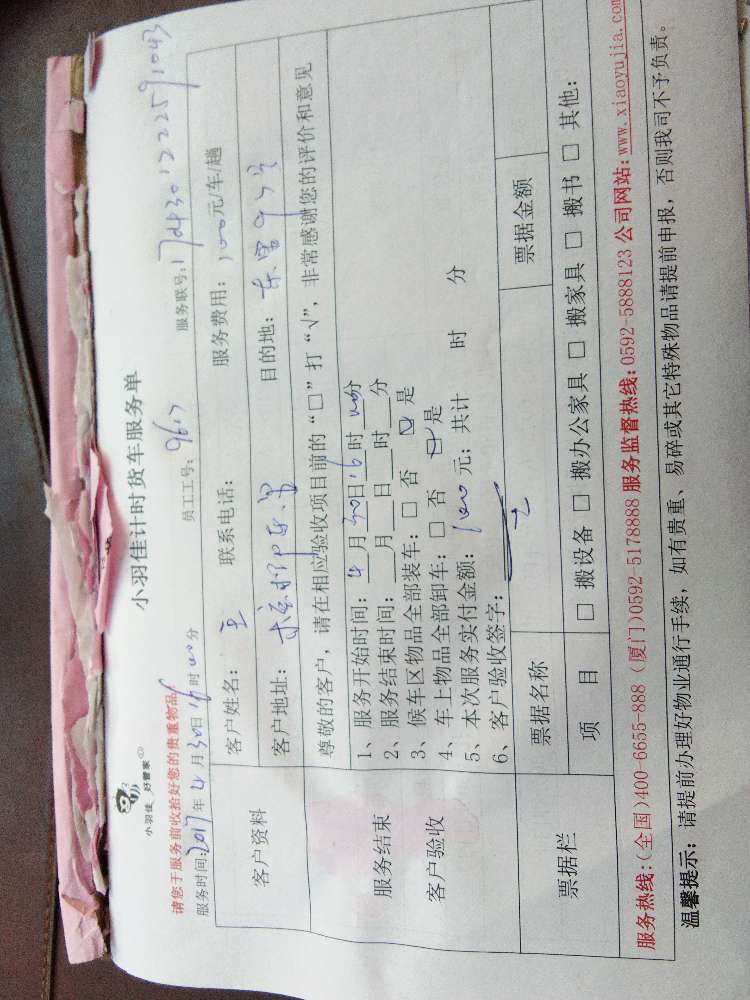 小羽佳 好管家
小羽佳计时货车服务单
请您于服务前收拾好您的贵重物品
服务时间:2017年4月30日16时00分 员工工号:9617 服务联号:
客户资料
客户姓名:王 联系电话: 服务费用:100元/车/趟
客户地址: 目的地:
尊敬的客户，请在相应验收项目前的“□”打“√”，非常感谢您的评价和意见
服务结束
客户验收
1、服务开始时间:4月30日16时00分
2、服务结束时间:__月__日__时__分
3、候车区物品全部装车:□ 否 ☑ 是
4、车上物品全部卸车:□ 否 ☑ 是
5、本次服务实付金额: 元;共计 时 分
6、客户验收签字:
票据栏
票据名称 票据金额
项 目 □ 搬设备 □ 搬办公家具 □ 搬家具 □ 搬书 □ 其他:
服务热线:(全国)400-6655-888 (厦门)0592-5178888 服务监督热线:0592-5888123 公司网站:www.xiaoyujia.com
温馨提示:请提前办理好物业通行手续，如有贵重、易碎或其它特殊物品请提前申报，否则我司不予负责。